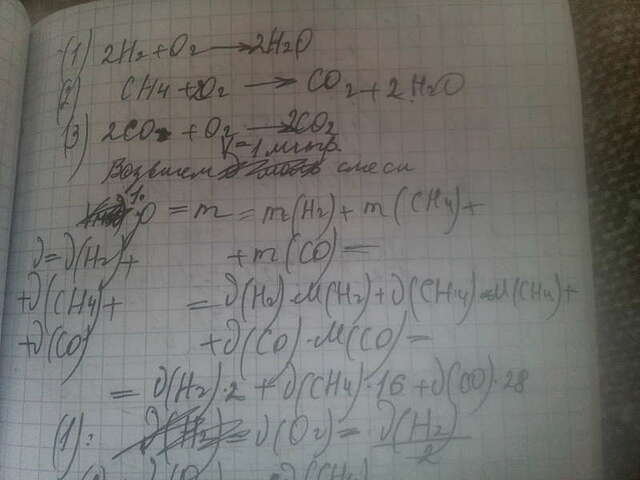 (1) 2H₂ + O₂ → 2H₂O
(2) CH₄ + 2O₂ → CO₂ + 2H₂O
(3) 2CO + O₂ → 2CO₂
V = 1 литр.
Возьмем смеси
1. ρ = m = m(H₂) + m(CH₄) +
ν = ν(H₂) + + m(CO) =
+ ν(CH₄) + = ν(H₂)·M(H₂) + ν(CH₄)·M(CH₄) +
+ ν(CO) + ν(CO)·M(CO) =
= ν(H₂)·2 + ν(CH₄)·16 + ν(CO)·28
(1): ν(O₂) = ν(H₂)/2